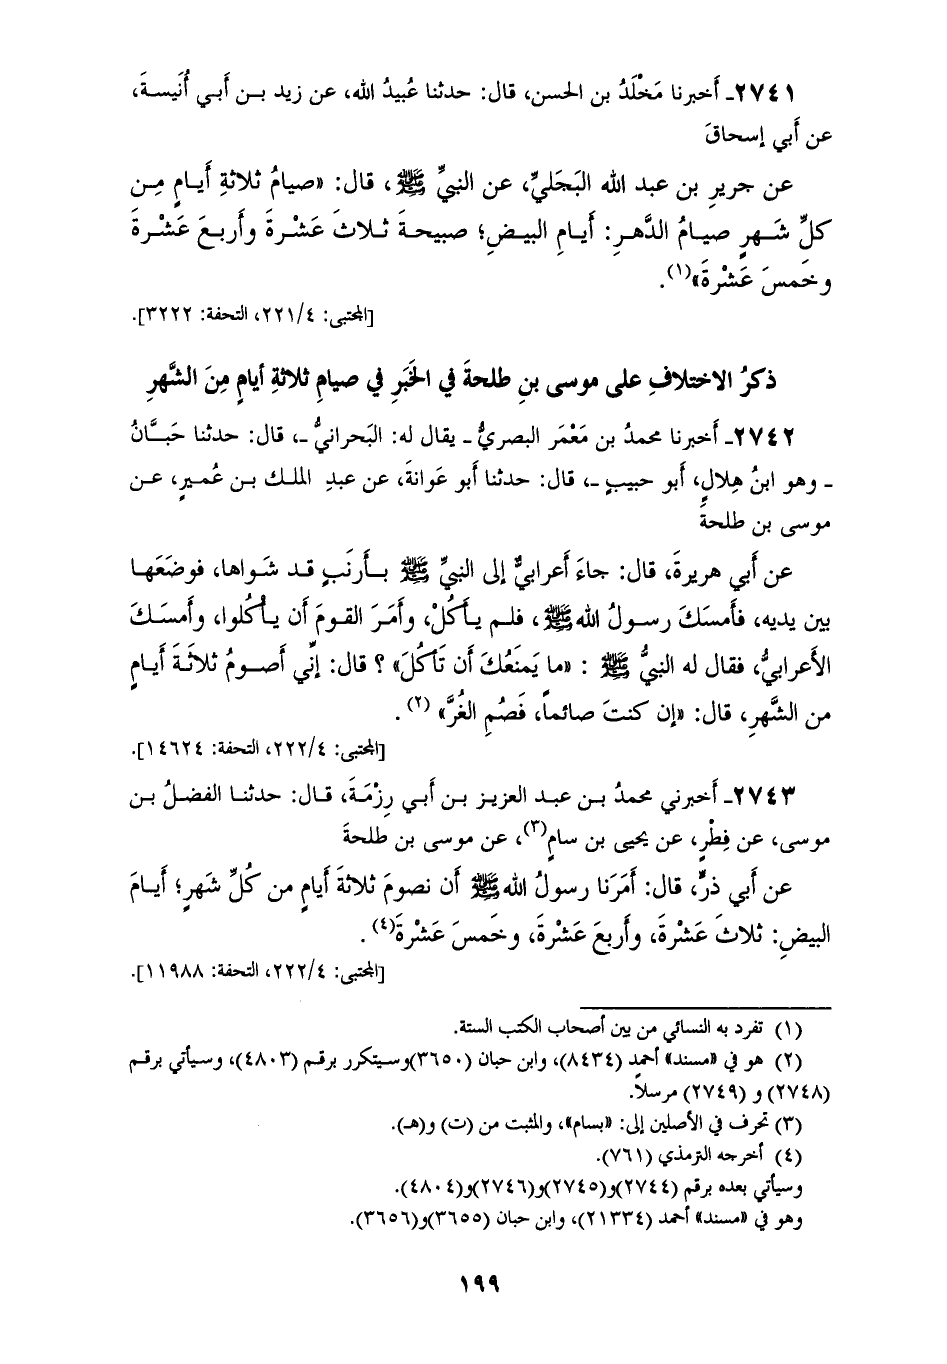 ٢٧٤١ـ أَخبرنا مَخْلَدُ بن الحسن، قال: حدثنا عُبيدُ الله، عن زيد بـن أَبي أُنَيسـةَ،
عن أَبي إسحاقَ
عن جريرِ بن عبد الله البَجَليِّ، عن النبيِّ ﷺ، قال: «صيامُ ثلاثةِ أَيـامٍ مِـن
كلِّ شَـهرٍ صيـامُ الدَّهـرِ: أَيـامِ البيـضِ؛ صبيحـةَ ثـلاثَ عَشْـرةَ وأَربعَ عَشْـرةَ
وخَمسَ عَشْرةَ»(١).
[المجتبى: ٢٢١/٤، التحفة: ٣٢٢٢].
ذكرُ الاختلافِ على موسى بنِ طلحةَ في الخَبَرِ في صيامِ ثلاثةِ أيامٍ مِنَ الشَّهرِ
٢٧٤٢ـ أَخبرنا محمدُ بن مَعْمَر البصريُّ ـ يقال له: البَحرانيُّ ـ، قال: حدثنا حَبَّـانُ
ـ وهو ابنُ هِلالٍ، أَبو حبيبٍ ـ، قال: حدثنا أَبو عَوانةَ، عن عبدِ الملـك بـن عُمـيرٍ، عـن
موسى بن طلحةَ
عن أَبي هريرةَ، قال: جاءَ أَعرابيٌّ إلى النبيِّ ﷺ بـأَرنَبٍ قـد شَـواها، فوضَعَهـا
بين يديه، فأَمسَكَ رسـولُ الله ﷺ، فلـم يـأكُلْ، وأَمَـرَ القـومَ أَن يـأكُلوا، وأَمسَـكَ
الأَعرابيُّ، فقال له النبيُّ ﷺ : «ما يَمنَعُكَ أَن تَأكُلَ» ؟ قال: إنِّي أَصـومُ ثلاثَـةَ أَيـامٍ
من الشَّهرِ، قال: «إن كنتَ صائماً، فَصُمِ الغُرَّ» (٢) .
[المجتبى: ٢٢٢/٤، التحفة: ١٤٦٢٤].
٢٧٤٣ـ أَخبرني محمدُ بـن عبـد العزيـز بـن أَبي رِزْمَـةَ، قـال: حدثنـا الفضـلُ بـن
موسى، عن فِطْرٍ، عن يحيى بن سام(٣)، عن موسى بن طلحةَ
عن أَبي ذرٍّ، قال: أَمَرَنا رسولُ الله ﷺ أَن نصومَ ثلاثةَ أَيامٍ من كُلِّ شهرٍ؛ أَيـامَ
البيضِ: ثلاثَ عَشْرةَ، وأَربعَ عَشْرةَ، وخَمسَ عَشْرةَ(٤) .
[المجتبى: ٢٢٢/٤، التحفة: ١١٩٨٨].
(١) تفرد به النسائي من بين أصحاب الكتب الستة.
(٢) هو في «مسند» أحمد (٨٤٣٤)، وابن حبان (٣٦٥٠)وسيتكرر برقم (٤٨٠٣)، وسيأتي برقم
(٢٧٤٨) و (٢٧٤٩) مرسلاً.
(٣) تحرف في الأصلين إلى: «بسام»، والمثبت من (ت) و(هـ).
(٤) أخرجه الترمذي (٧٦١).
وسيأتي بعده برقم (٢٧٤٤)و(٢٧٤٥)و(٢٧٤٦)و(٤٨٠٤).
وهو في «مسند» أحمد (٢١٣٣٤)، وابن حبان (٣٦٥٥)و(٣٦٥٦).
١٩٩